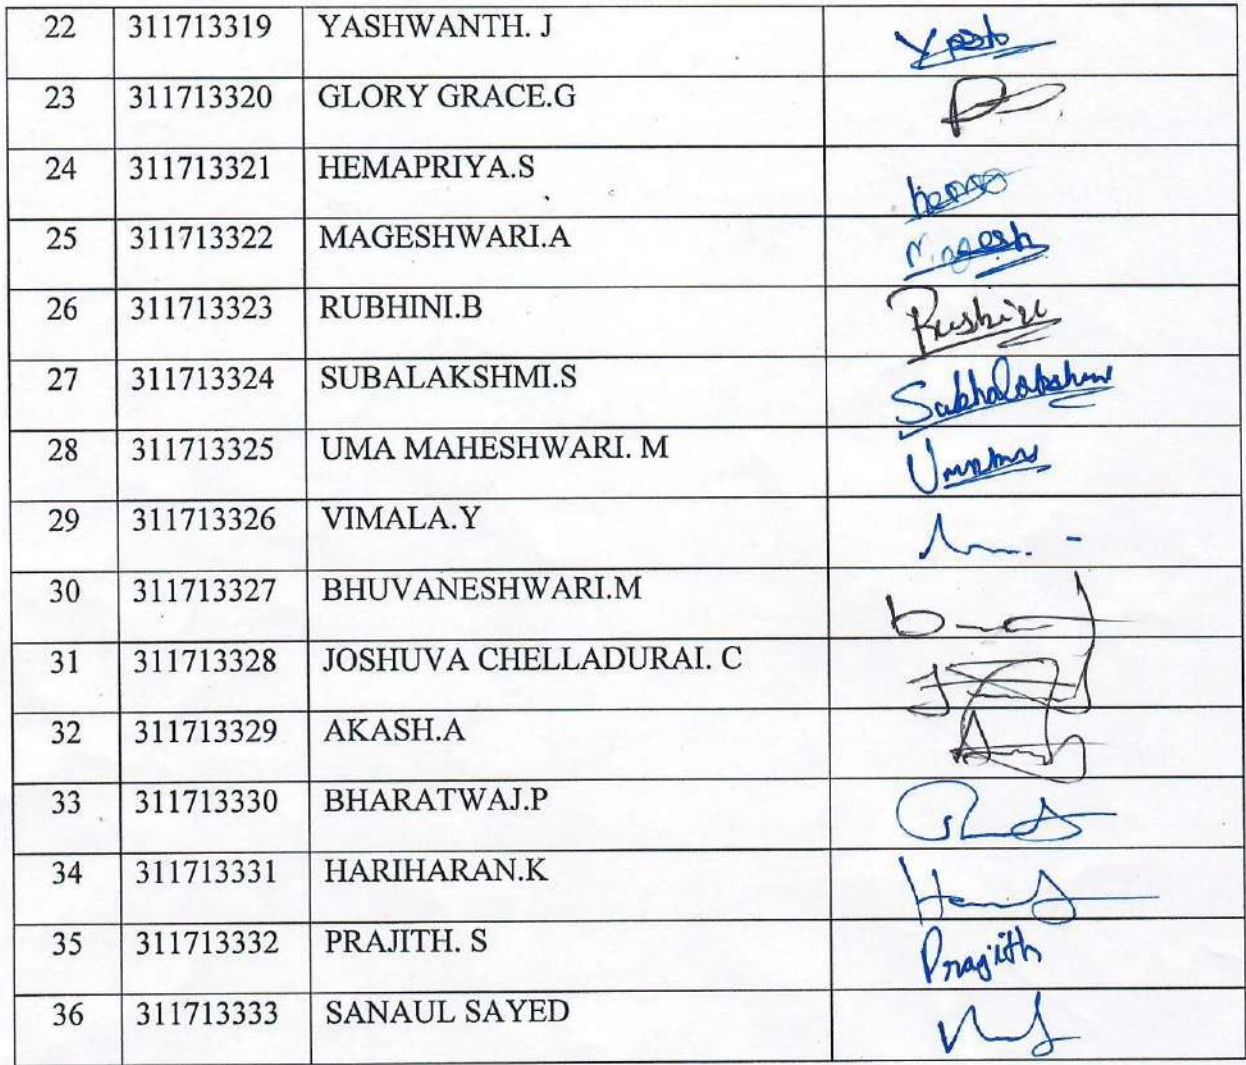 22 311713319 YASHWANTH. J Yash
23 311713320 GLORY GRACE.G
24 311713321 HEMAPRIYA.S hema
25 311713322 MAGESHWARI.A Magesh
26 311713323 RUBHINI.B
27 311713324 SUBALAKSHMI.S
28 311713325 UMA MAHESHWARI. M
29 311713326 VIMALA.Y
30 311713327 BHUVANESHWARI.M
31 311713328 JOSHUVA CHELLADURAI. C
32 311713329 AKASH.A
33 311713330 BHARATWAJ.P
34 311713331 HARIHARAN.K
35 311713332 PRAJITH. S Prajith
36 311713333 SANAUL SAYED